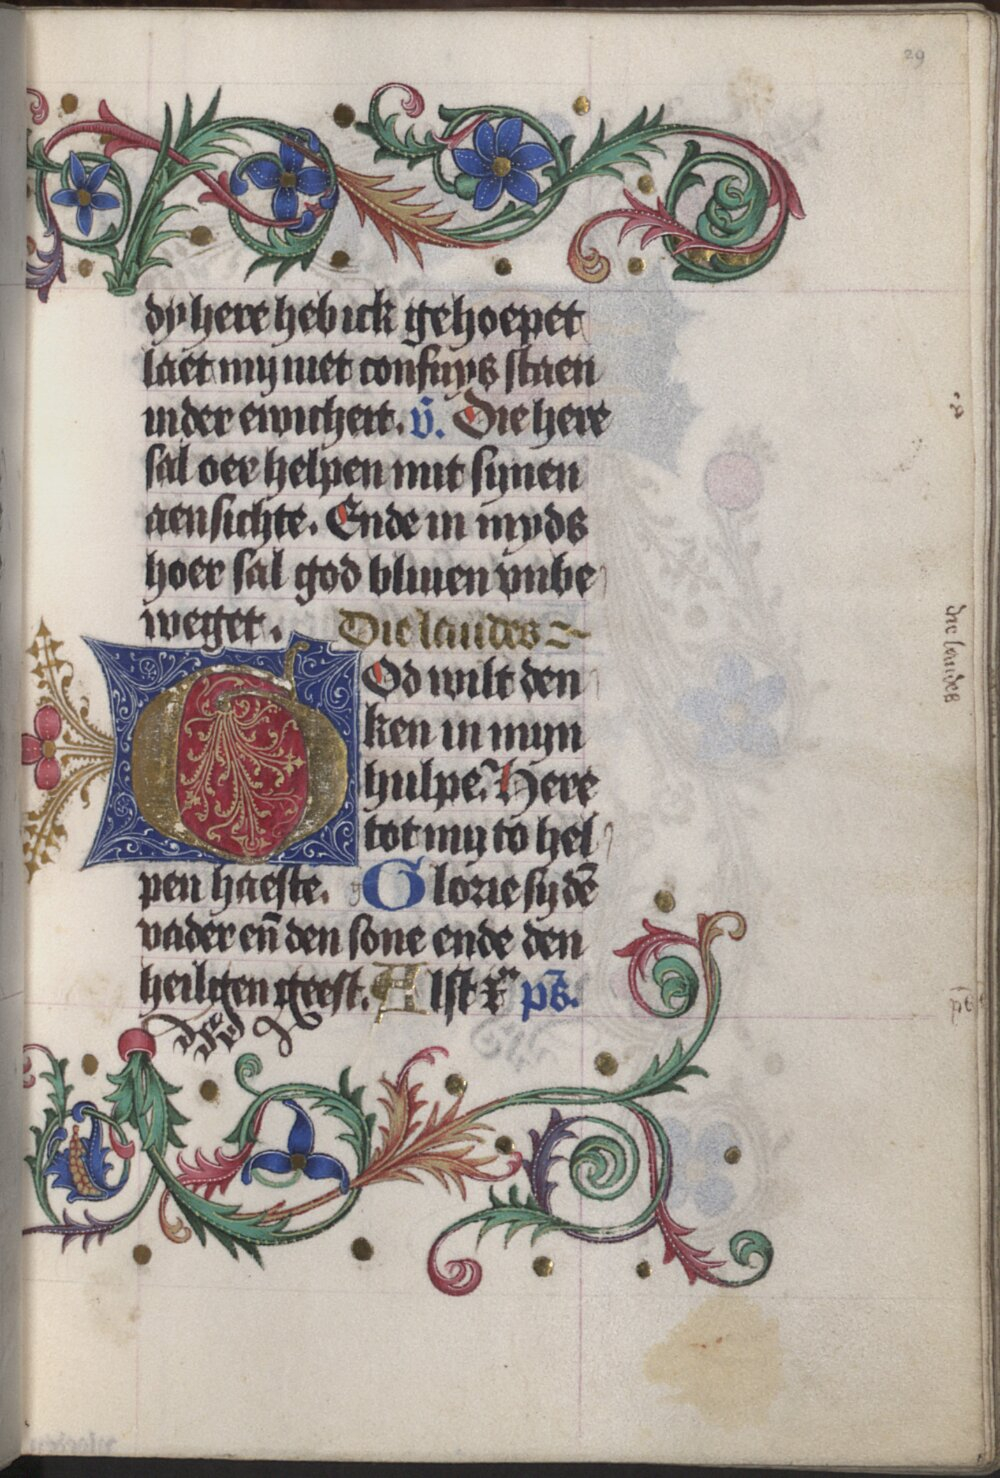 29
dy here heb ick gehoepet
laet my niet confuys staen
in der ewicheit. v̄. Die here
sal oer helpen mit synen
aensichte. Ende in myds
hoer sal god bliuen vnbe
weget. Die laudes
God wilt den
ken in myn
hulpe. Here
tot my to hel
pen haeste. Glorie sy dē
vader en̄ den sone ende den
heiligen geest. Alst ps̄.
die laudes